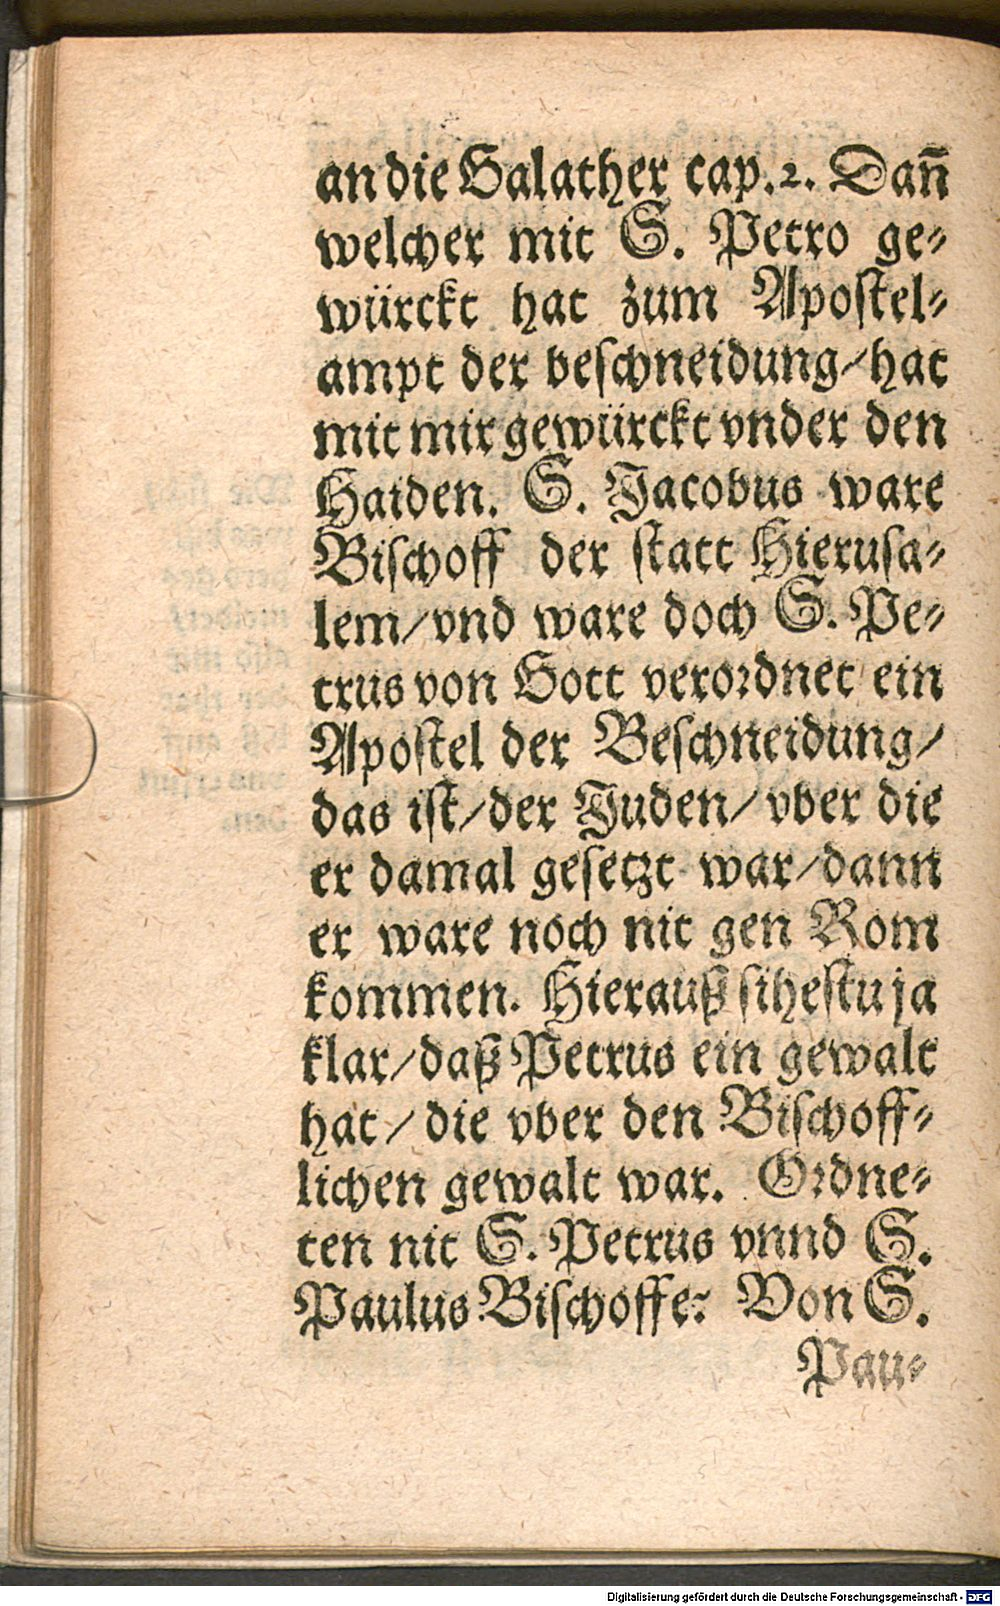 an die Galather cap. 2. Dañ
welcher mit S. Petro ge⸗
würckt hat zum Apostel⸗
ampt der beschneidung/hat
mit mir gewürckt vnder den
Haiden. S. Jacobus ware
Bischoff der statt Hierusa⸗
lem/vnd ware doch S. Pe⸗
trus von Gott verordnet ein
Apostel der Beschneidung/
das ist/der Juden/vber die
er damal gesetzt war/dann
er ware noch nit gen Rom
kommen. Hierauß sihestu ja
klar/daß Petrus ein gewalt
hat/die vber den Bischoff⸗
lichen gewalt war. Ordne⸗
ten nit S. Petrus vnnd S.
Paulus Bischoffe? Von S.
Pau⸗
Digitalisierung gefördert durch die Deutsche Forschungsgemeinschaft - DFG